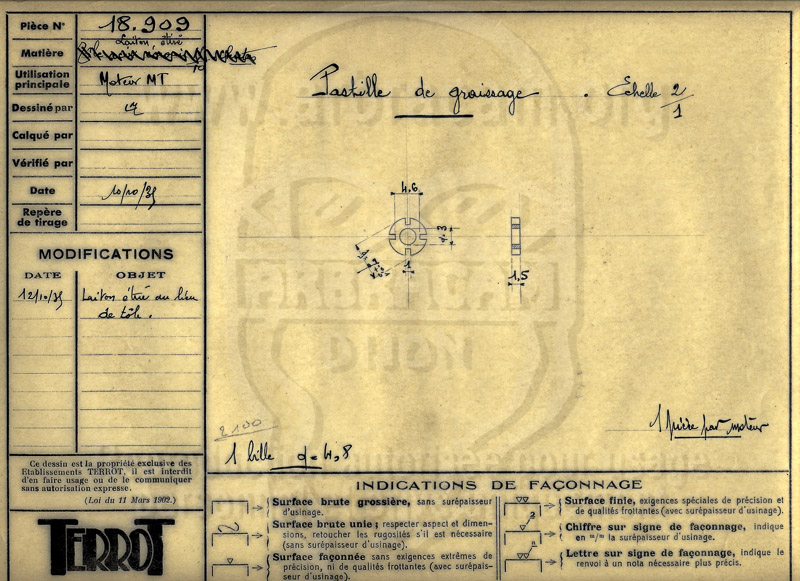 Pièce N° 18.909
Laiton étiré
Matière
Utilisation principale Moteur MT
Dessiné par
Calqué par
Vérifié par
Date 10/10/35
Repère de tirage
MODIFICATIONS
DATE OBJET
12/10/35 Laiton étiré au lieu
de tôle.
Ce dessin est la propriété exclusive des
Etablissements TERROT, il est interdit
d'en faire usage ou de le communiquer
sans autorisation expresse.
(Loi du 11 Mars 1902.)
TERROT
Pastille de graissage . Echelle 2/1
4.6
3
1
1.5
2100
1 pièce par moteur
1 bille d=4,8
INDICATIONS DE FAÇONNAGE
Surface brute grossière, sans surépaisseur
d'usinage.
Surface brute unie ; respecter aspect et dimen-
sions, retoucher les rugosités s'il est nécessaire
(sans surépaisseur d'usinage).
Surface façonnée sans exigences extrêmes de
précision, ni de qualités frottantes (avec surépais-
seur d'usinage).
Surface finie, exigences spéciales de précision et
de qualités frottantes (avec surépaisseur d'usinage).
Chiffre sur signe de façonnage, indique
en m/m la surépaisseur d'usinage.
Lettre sur signe de façonnage, indique le
renvoi à un nota nécessaire plus précis.